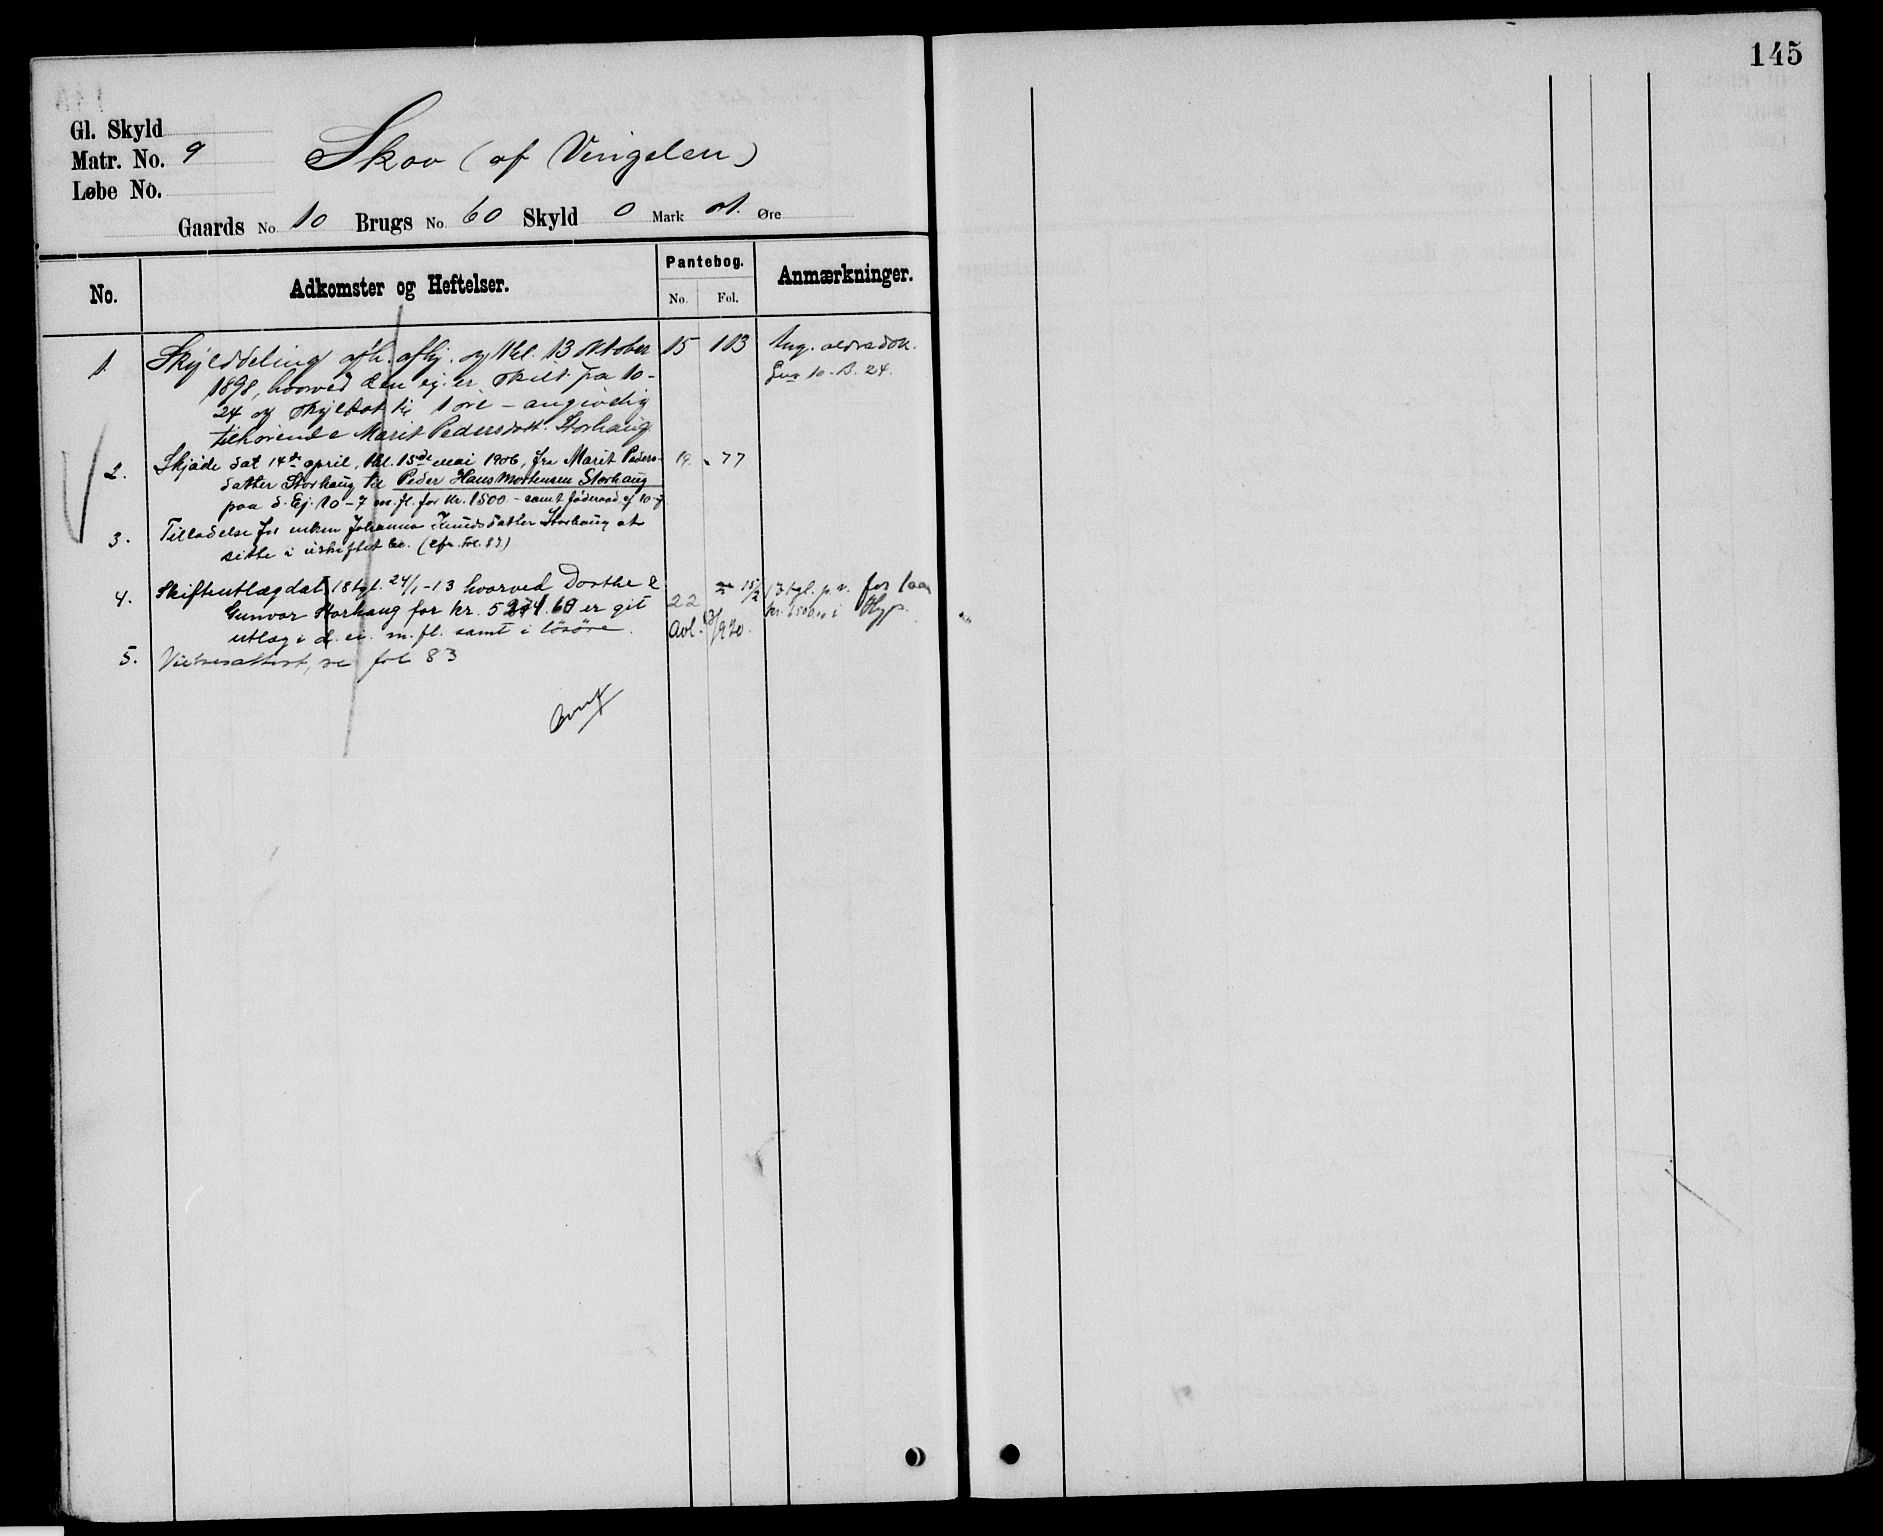 145
Gl. Skyld
Matr. No. 9
Løbe No.
Skov (af Vingelen)
Gaards No. 10 Brugs No. 60 Skyld 0 Mark 01. Øre
No. Adkomster og Heftelser. Pantebog. Anmærkninger.
No. Fol.
1. Skylddeling afh. afhj. og thl. 13 Oktober 15 113
1898, hvorved den ej. er skilt fra 10-
24 og skyldsat til 1 øre - angivelig
tilhørende Marit Pedersdatt. Storhaug.
Ang. ældre dok.
10 - B. 24.
2. Skjøde dat 14de april, thl. 15de mai 1906, fra Marit Peders- 19. 77
datter Storhaug til Peder Hans Mortensen Storhaug
paa d. Ej. 10-7 m. fl. for kr. 1500 - samt føderaad af 10-7
3. Tilladelse for enken Johanna Knudsdatter Storhaug at
sitte i uskiftet bo. (cfr. fol. 83)
4. Skifteutlæg dat. 18 tgl. 24/1-13 hvorved Dorthe &
Gunvor Storhaug for kr. er git
utlæg i d. ei. m. fl. samt i løsøre.
22
Avl.
/920.
15/2 13 tgl. p. v. for laan
i Hyp.
5. Vielsesattest, se fol 83